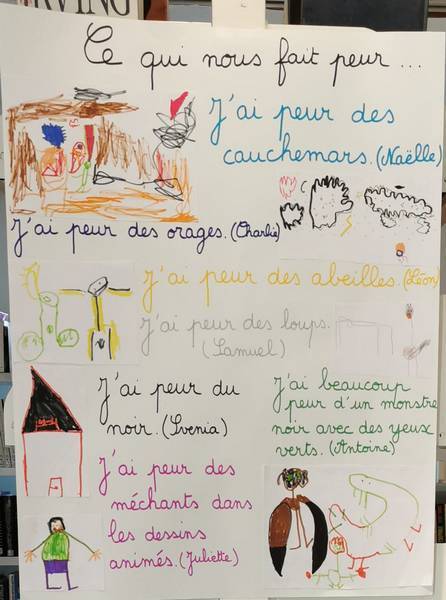 RVING
Ce qui nous fait peur...
J'ai peur des
cauchemars. (Naëlle)
J'ai peur des orages. (Charlie)
J'ai peur des abeilles. (Léon)
J'ai peur des loups.
(Samuel)
J'ai peur du
noir. (Svenia)
J'ai beaucoup
peur d'un monstre
noir avec des yeux
verts. (Antoine)
J'ai peur des
méchants dans
les dessins
animés. (Juliette)